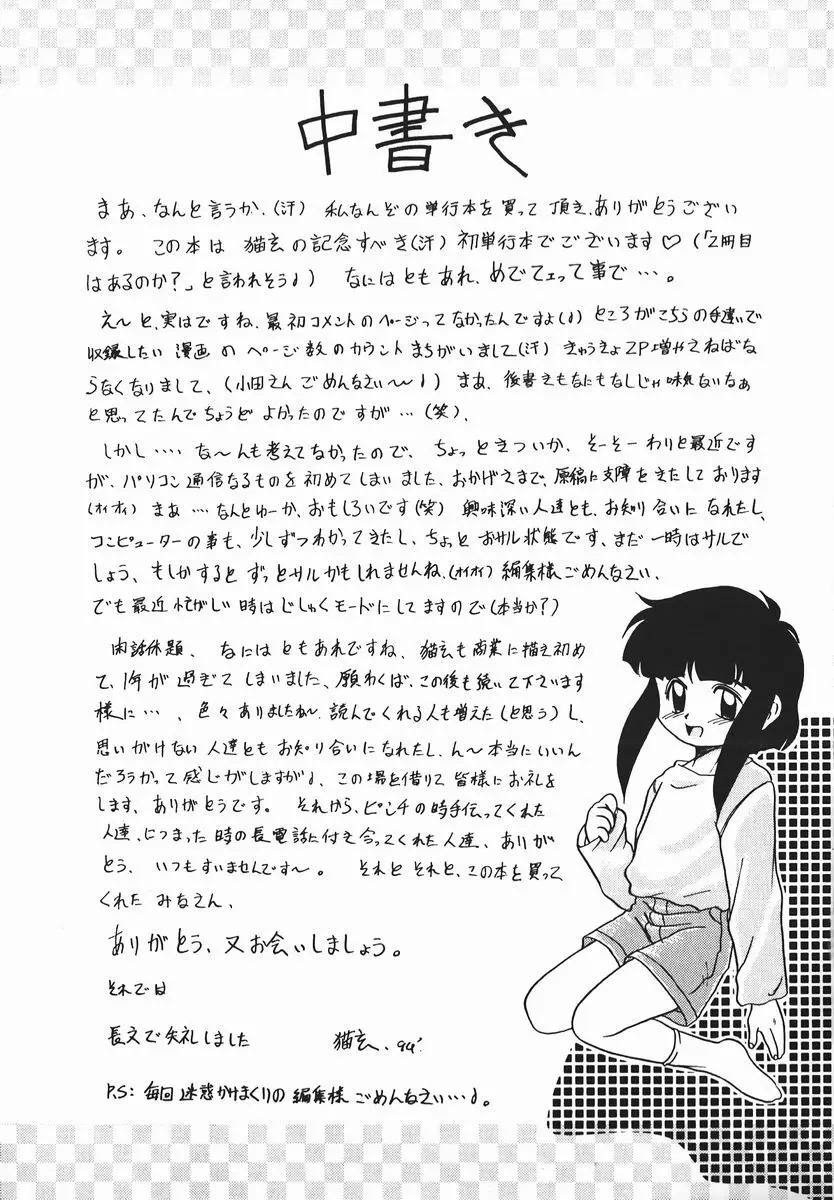 中書き
まあ、なんと言うか、(汗) 私なんぞの単行本を買って頂き、ありがとうござい
ます。 この本は 猫玄の記念すべき(汗)初単行本でございます♡(「2冊目
はあるのか?」と言われそう♪) なにはともあれ、めでてェって事で…。
え〜と、実はですね、最初コメントのページってなかったんですよ(♪) ところがこちらの手違いで
収録したい 漫画のページ数のカウントまちがいまして(汗) きゅうきょ2P増やさねばな
らなくなりまして、(小田さんごめんなさい〜♪) まあ、後書きもなにもなしじゃ味気ないなぁ
と思ってたんでちょうどよかったのですが…(笑)、
しかし‥‥な〜んも考えてなかったので、ちょっときついか、そーそーわりと最近です
が、パソコン通信なるものを初めてしまいました、おかげさまで、原稿に支障をきたしております
(オイオイ) まあ…なんとゆーか、おもしろいです(笑) 興味深い人達とも、お知り合いになれたし、
コンピューターの事も、少しずつわかってきたし、ちょっとおサル状態です、まだ一時はサルで
しょう、もしかするとずっとサルかもしれませんね、(オイオイ)編集様ごめんなさい、
でも最近忙がしい時はじしゅくモードにしてますので(本当か?)
閑話休題、なにはともあれですね、猫玄も商業に描き初め
て、1年が過ぎてしまいました、願わくば、この後も続いて下さいます
様に…、色々ありましたねー、読んでくれる人も増えた(と思う)し、
思いがけない人達ともお知り合いになれたし、ん〜本当にいいん
だろうかって感じがしますが♪、この場を借りて皆様にお礼を
します、ありがとうです。 それから、ピンチの時手伝ってくれた
人達、につまった時の長電話に付き合ってくれた人達、ありが
とう、いつもすいませんです〜。 それとそれと、この本を買って
くれたみなさん、
ありがとう、又お会いしましょう。
それでは
長文で失礼しました 猫玄、94'
P.S: 毎回迷惑かけまくりの編集様ごめんなさい…♪。